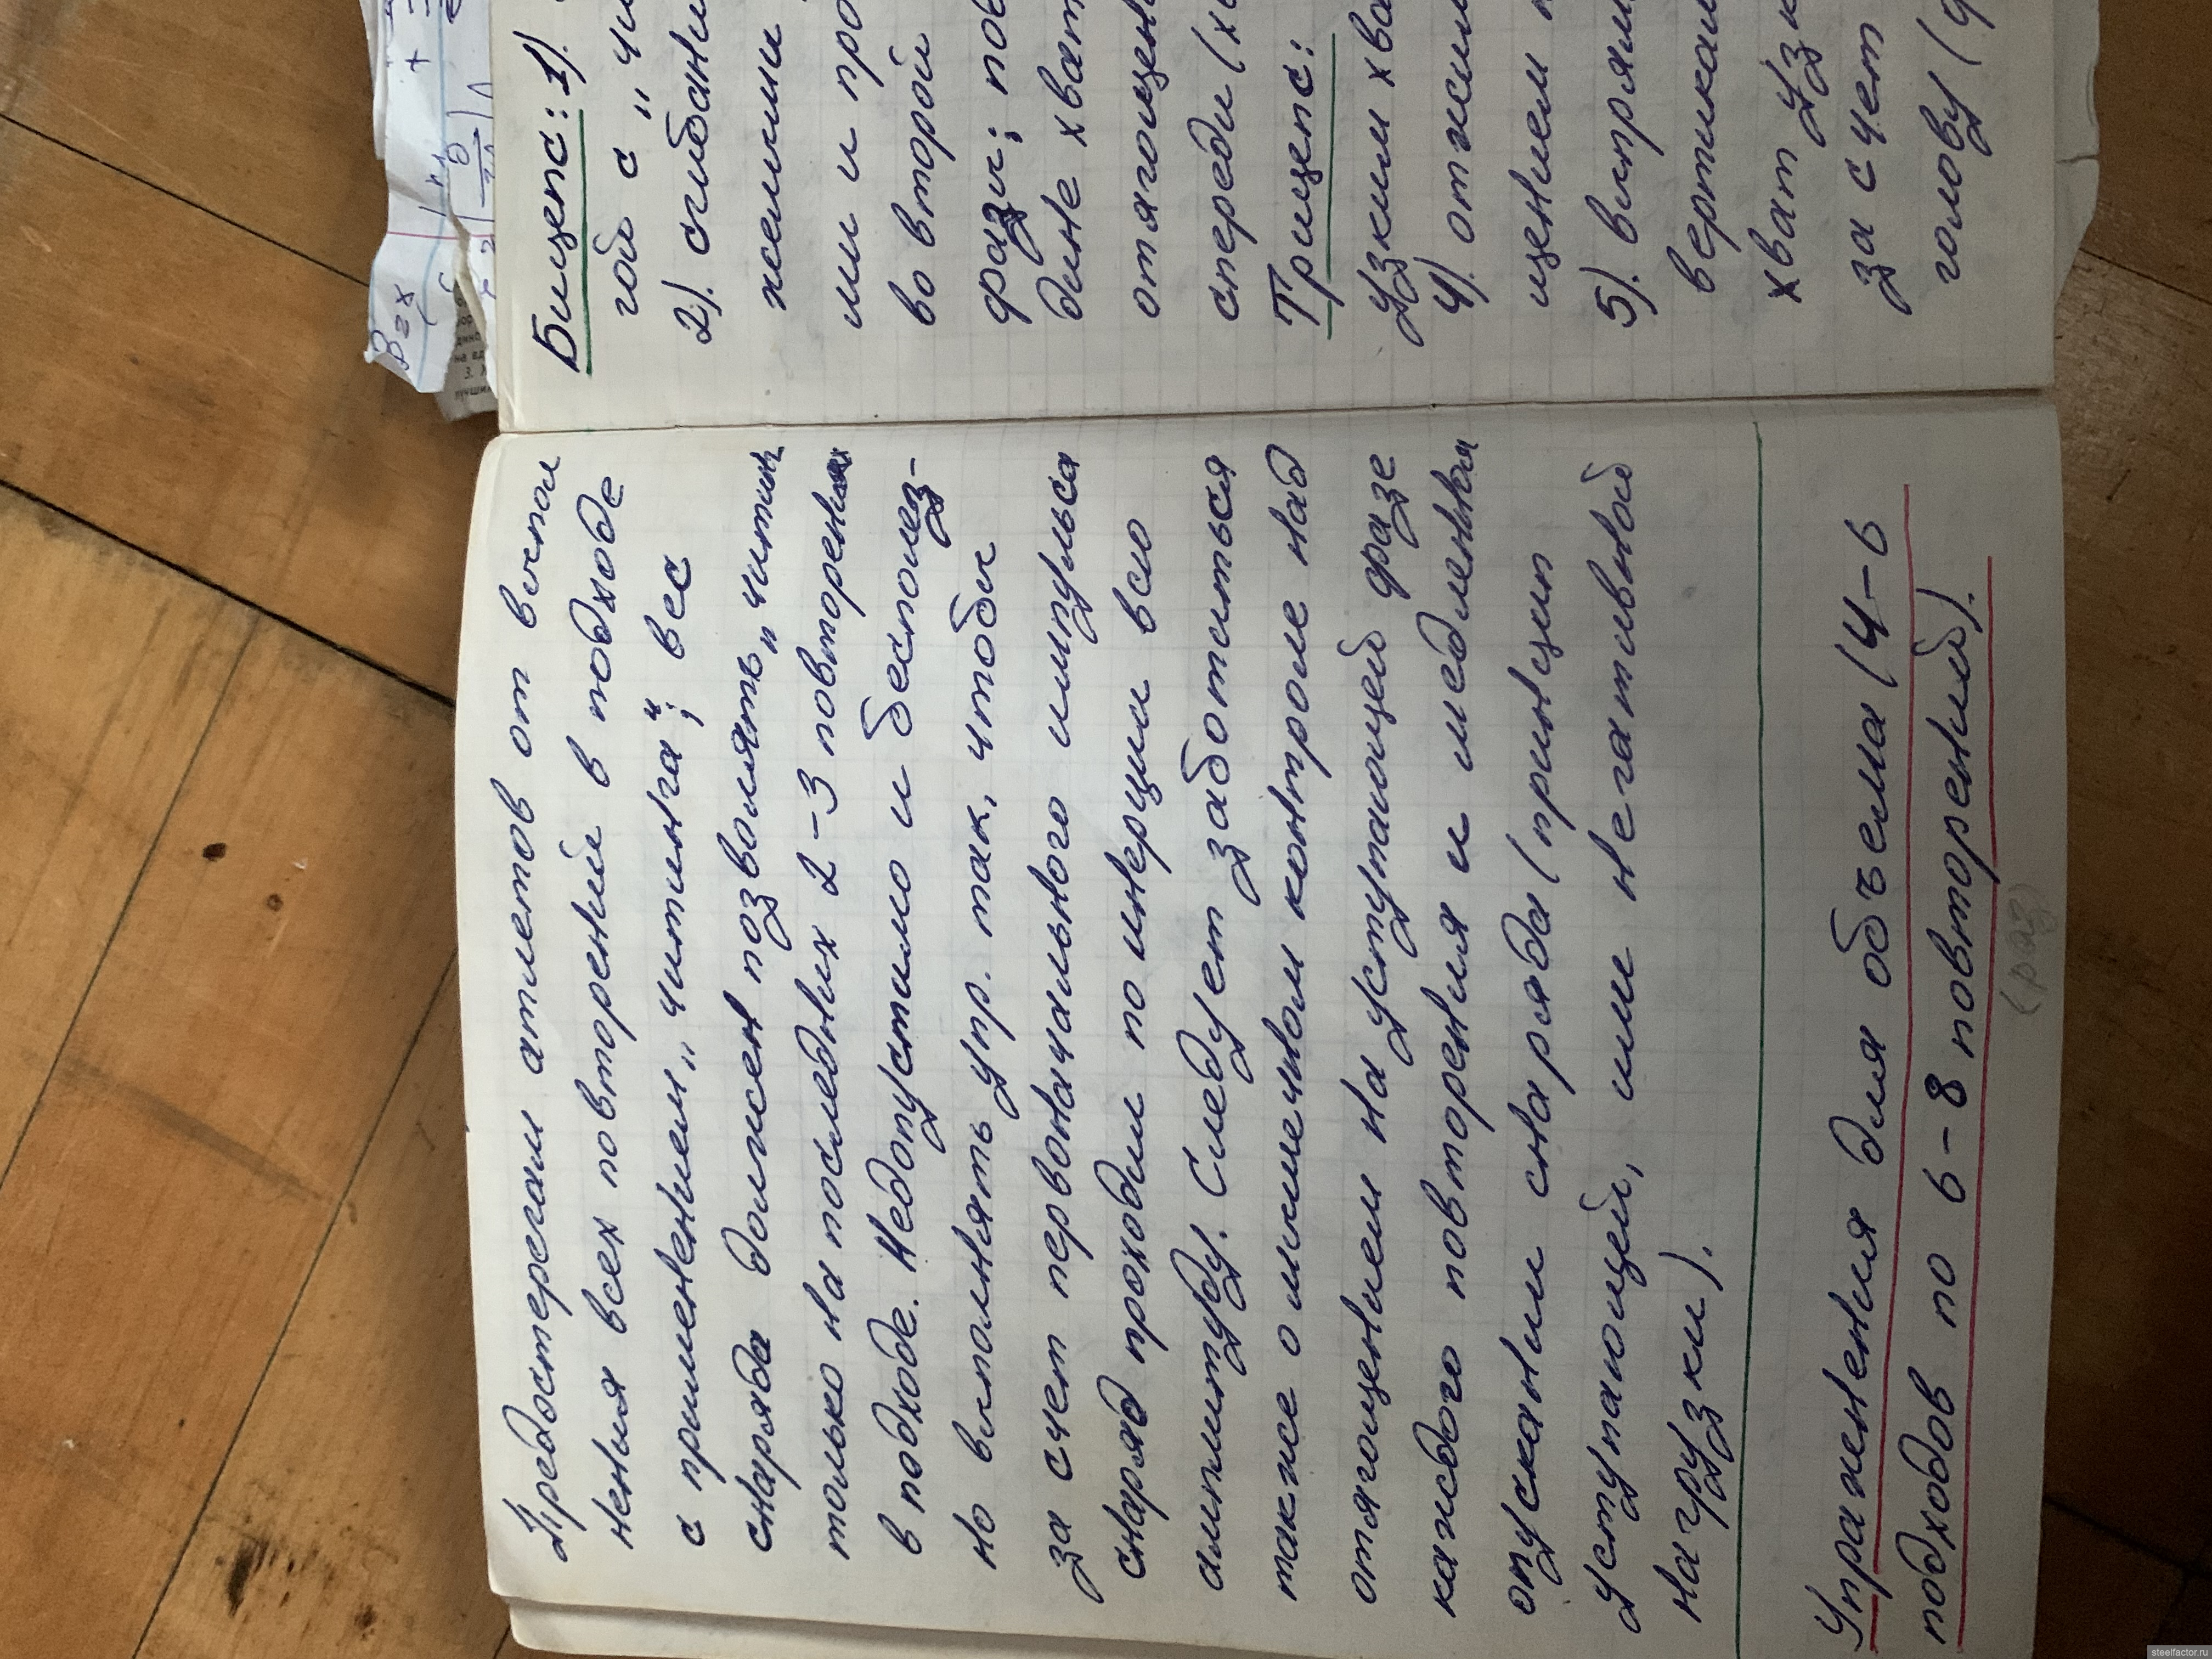 Предостерегаем атлетов от выпол
нения всех повторений в подходе
с применением „читинга“; вес
снаряда должен позволять „читинг
только на последних 2-3 повторениях
в подходе. Недопустимо и бесполез-
но выполнять упр. так, чтобы
за счет первоначального импульса
снаряд проходил по инерции всю
амплитуду. Следует заботиться
также о мышечном контроле над
отягощением на уступающей фазе
каждого повторения и медленном
опускании снаряда (принцип
уступающей, или негативной
нагрузки).
Упражнения для объема (4-6
подходов по 6-8 повторений).
(раз)
Бицепс: 1).
с „чи
2). сгибани
жели
ми и про
во второй
фазы; пов
хват
отягощен
спереди (х
Трицепс:
узким хва
4). отжим
щением
5). выпрям
вертикал
хват узк
за счет
голову (
B=x
steelfactor.ru